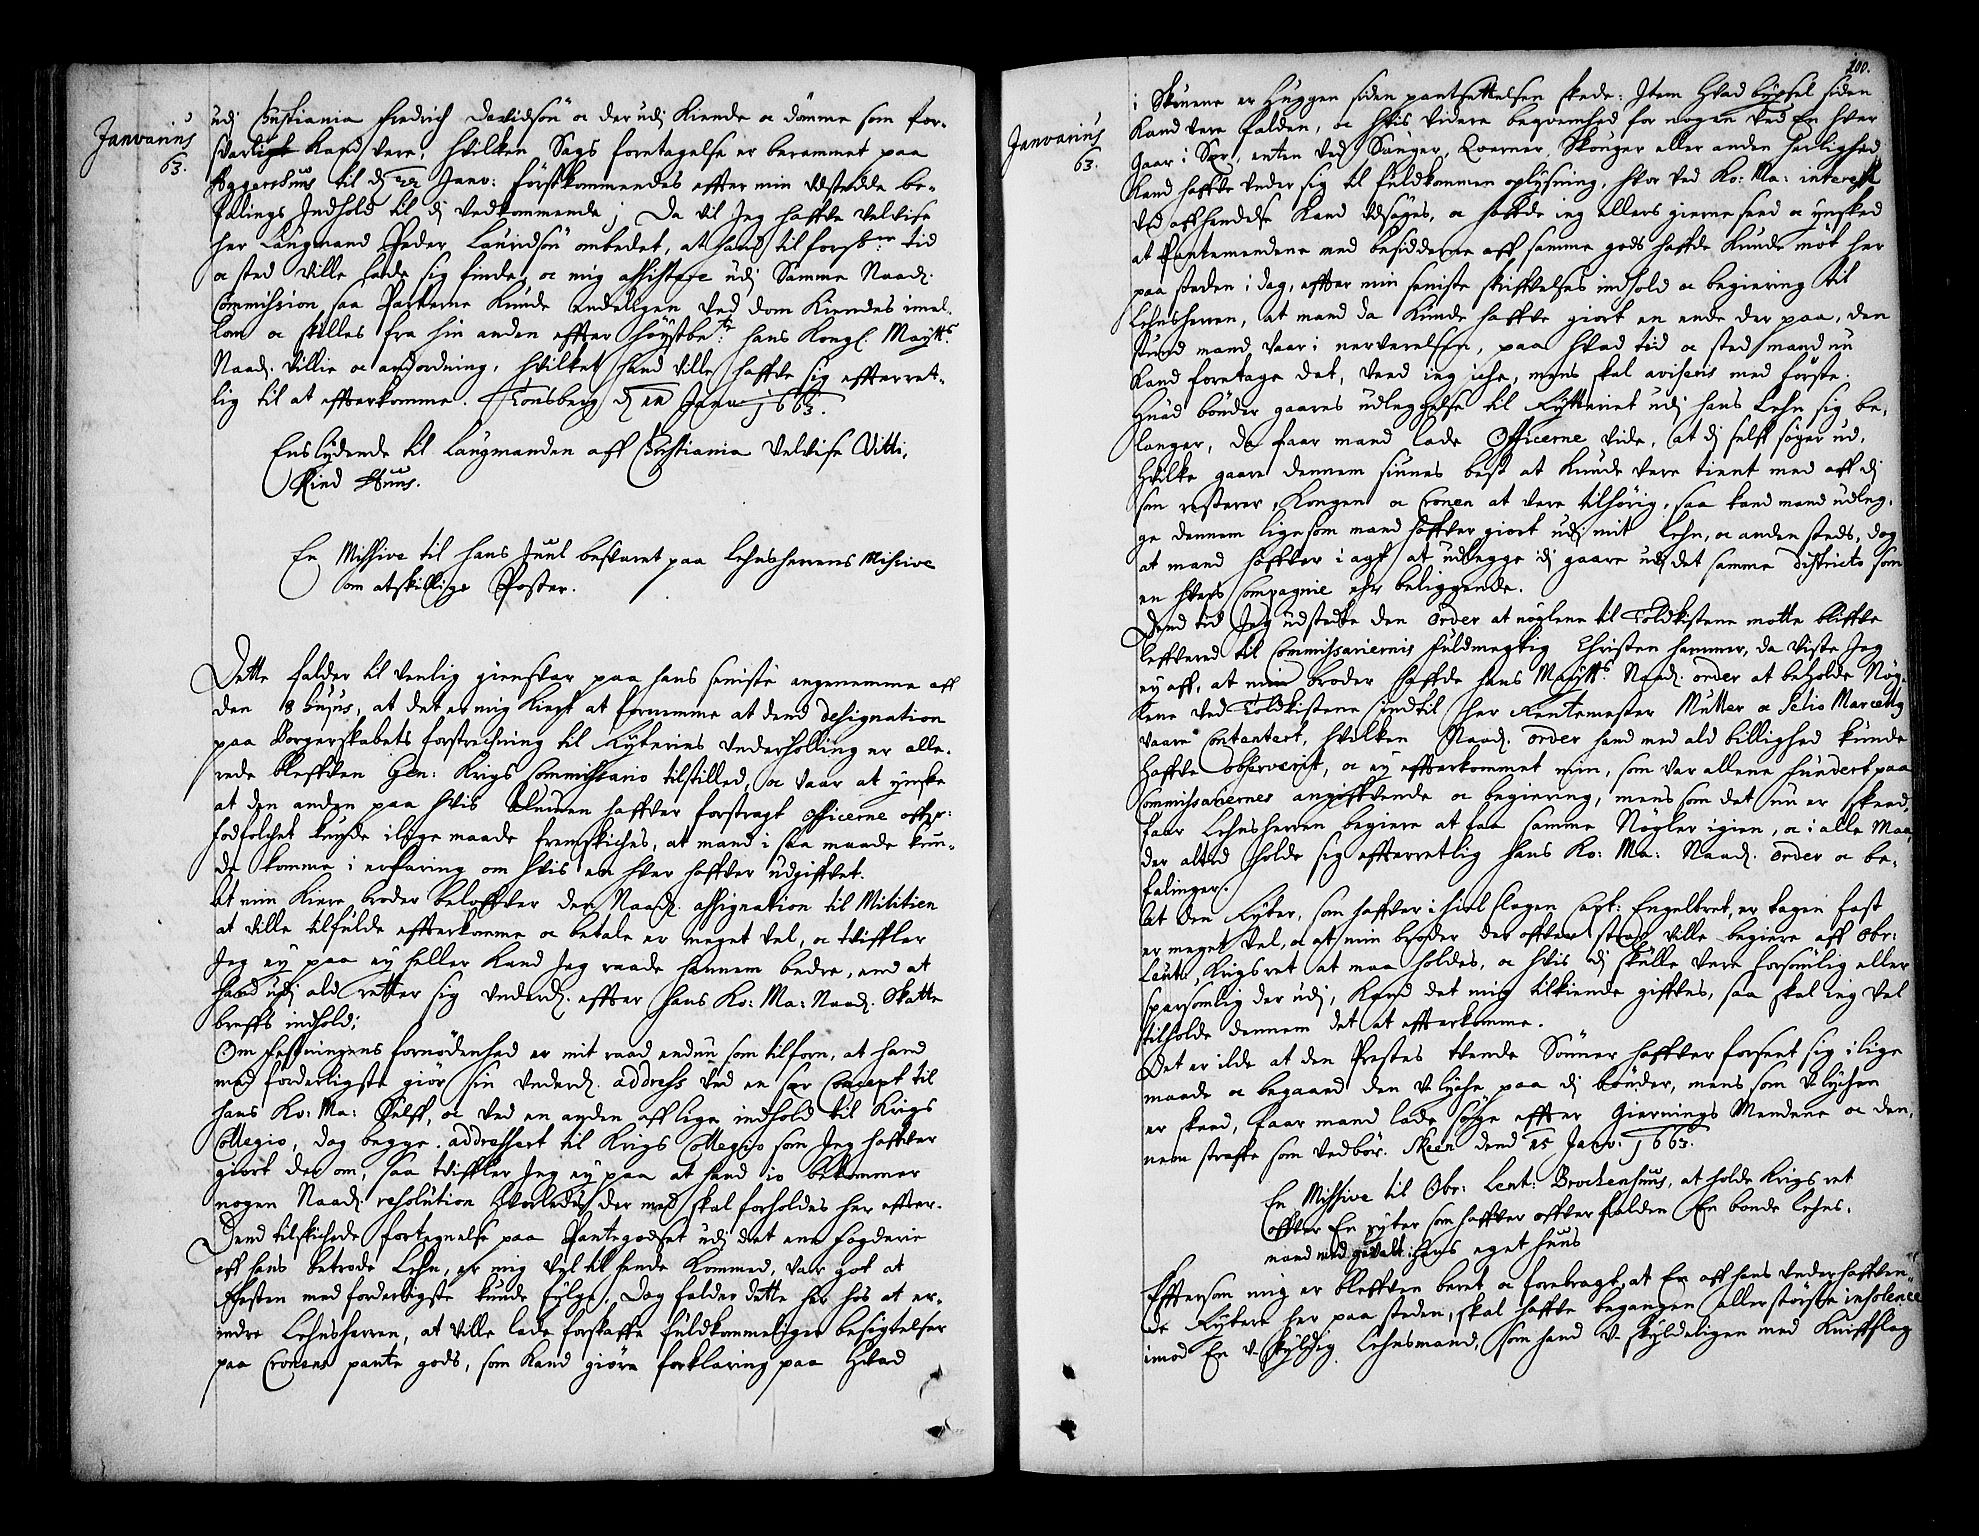 Janvarius
63.
udj Christiania Fredrich Davidsøn oc der udj Kiende oc dømme som for-
svarligt kand vere, hvilken Sags foretagelse er berammet paa
Aggershuus til dj 22 Janv: førstkommendes effter min udstedde be-
falings Indhold til dj vedkommende; Da vil Jeg haffve velvise
her Laugmand Peder Lauridsøn ombedet, at hand til forsbne tid
oc sted ville lade sig finde, oc mig assistere udj Samme Naadj.
Commission, saa Parterne kunde endeligen ved dom kiendes imel-
lom oc skilles fra hin anden effter høystbete: hans Kongl: Maytts.
Naadj. villie oc anordning, hvilket hand ville haffve sig effterret-
lig til at effterkomme. Tonsberg dj 12 Janv 1663.
Enslydende til Laugmanden aff Christiania velvise Vitti,
Kind Huus.
En Missive til Hans Juul besvaret paa Lehnsherrens Missive
om atskillige Poster.
Dette falder til venlig giensvar paa hans seniste angenemme aff
den 8 hujus, at det er mig kiert at fornemme at dend designation
paa Borgerskabets forstrechning til Ryteries underholling er alle-
rede bleffven Gen: Krigs Commissario tilstilled, oc vaar at ynske
at den anden paa hvis Almuen haffver forstragt officerne offver
fodfolchet kunde ilige maade fremskiches, at mand i saa maade kun-
de komme i erfaring om hvis en hver haffver udgiffvet.
At min kiere broder beloffver den Naadj. assignation til Militien
at ville tilfulde effterkomme oc betale er meget vel, oc tviffler
Jeg ey paa ey heller kand Jeg raade hannem bedre, end at
hand udj ald retter sig underdj. effter hans Ko: Ma: Naadj. Skatte
breffs indhold;
Om Festningens fornødenhed er mit raad endnu som tilforn, at hand
med forderligste giør sin underdj. address ved en sær Concept til
hans Ko: Ma: Self, oc ved en anden aff lige indhold til Krigs
Collegio, dog begge addressert til Krigs Collegio som Jeg haffver
giort der om, saa tviffler Jeg ey paa at hand jo bekommer
nogen Naadj. resolution hvorledes der med skal forholdes her effter.
Dend tilskichede fortegnelse paa Pantegodset udj det ene fogderie
aff hans betrode Lehn, er mig vel til hende kommed, var got at
Resten med forderligste kunde fylge, Dog falder dette her hos at er-
indre Lehnsherren, at ville lade forskaffe fuldkommelige besigtelser
paa Cronens pante gods, som kand giøre forklaring paa hvad
200.
Janvarius
63.
i Skouene er huggen siden pantsettelsen skede: Item hvad bøxsel siden
kand vere falden, oc hvis videre beqvemhed for nogen ved En hver
Gaar i Sær, enten ved Sauger, Qverner, Skouger eller anden herlighed
kand haffve under sig til fuldkommen oplysning, hvor ved Ko: Ma: interesse
ved affhendelse kand udsøges, oc haffde ieg ellers gierne seed oc ynsked
at Pantemendene med besidderne aff samme gods haffde kunde møt her
paa steden i dag, effter min seniste skriffvelses indhold oc begiering til
Lehnsherren, at mand da kunde haffve giort en ende der paa, den
stund mand vaar i nerverelsen, paa hvad tid oc sted mand nu
kand foretage det, veed ieg iche, mens skal aviseris med første.
Huad bønder gaares udleggelse til Rytteriet udj hans Lehn sig be-
langer, da faar mand lade Officerne vide, at dj selff søger ud,
hvilke gaare dennem siunes best at kunde vere tient med aff dj
som resterer, Kongen oc Cronen at vere tilhørig, saa kand mand udleg-
ge dennem ligesom mand haffver giort udj mit Lehn, oc anden steds, dog
at mand haffver i agt at udlegge dj gaare udj det samme districto som
en hvers Compagnie ehr beliggende.
Dend tid Jeg udstedte den Order at nøglene til Toldkistene motte bliffve
leffvered til Commissariernis fuldmegtig Christen hammer, da viste Jeg
ey aff, at min broder haffde hans Maytts. Naadj. order at beholde Nøg-
lene ved Toldkistene indtil her Rentemester Müller oc Selio Marcelis
vaare Contentert, hvilken Naadj. order hand med ald billighed kunde
haffve observerit, oc ey effterkommet min, som var allene fundert paa
Commissariernes angiffvende oc begiering, mens som det nu er skeed,
faar Lehnsherren begiere at faa samme Nøgler igien, oc i alle Maa-
der altid holde sig effterretlig hans Ko: Ma: Naadj. order oc be-
falinger.
At den Ryter, som haffver ihiel slagen Capt: Engelbret, er tagen fast
er meget vel, oc at min broder der offver strax ville begiere aff Obr:
Leut: Krigsret at maa holdes, oc hvis dj skulle vere forsømlig eller
sparsomlig der udj, kand det mig tilkiende giffves, saa skal ieg vel
tilholde dennem det at effterkomme.
Det er ilde at den Prestes tvende Sønner haffver forseet sig ilige
maade oc begaaed den v-lyche paa dj bønder, mens som v-lychen
er skeed, faar mand lade søge effter Giernings Mendene oc den-
nem straffe som vedbør. Skeen dend 15 Janv: 1663.
En Missive til Obr: Leut: Brockenhuus, at holde Krigsret
offver En ryter som haffver offverfalden En bonde Lehns-
mand med gevalt i hans eget huus
Effter som mig er bleffven beret oc forebragt, at En aff hans underhaffven-
de Rytere her paa steden, skal haffve begangen allerstorste insolence
imod En v-skyldig Lehnsmand, som hand v-skyldeligen med kniffslag